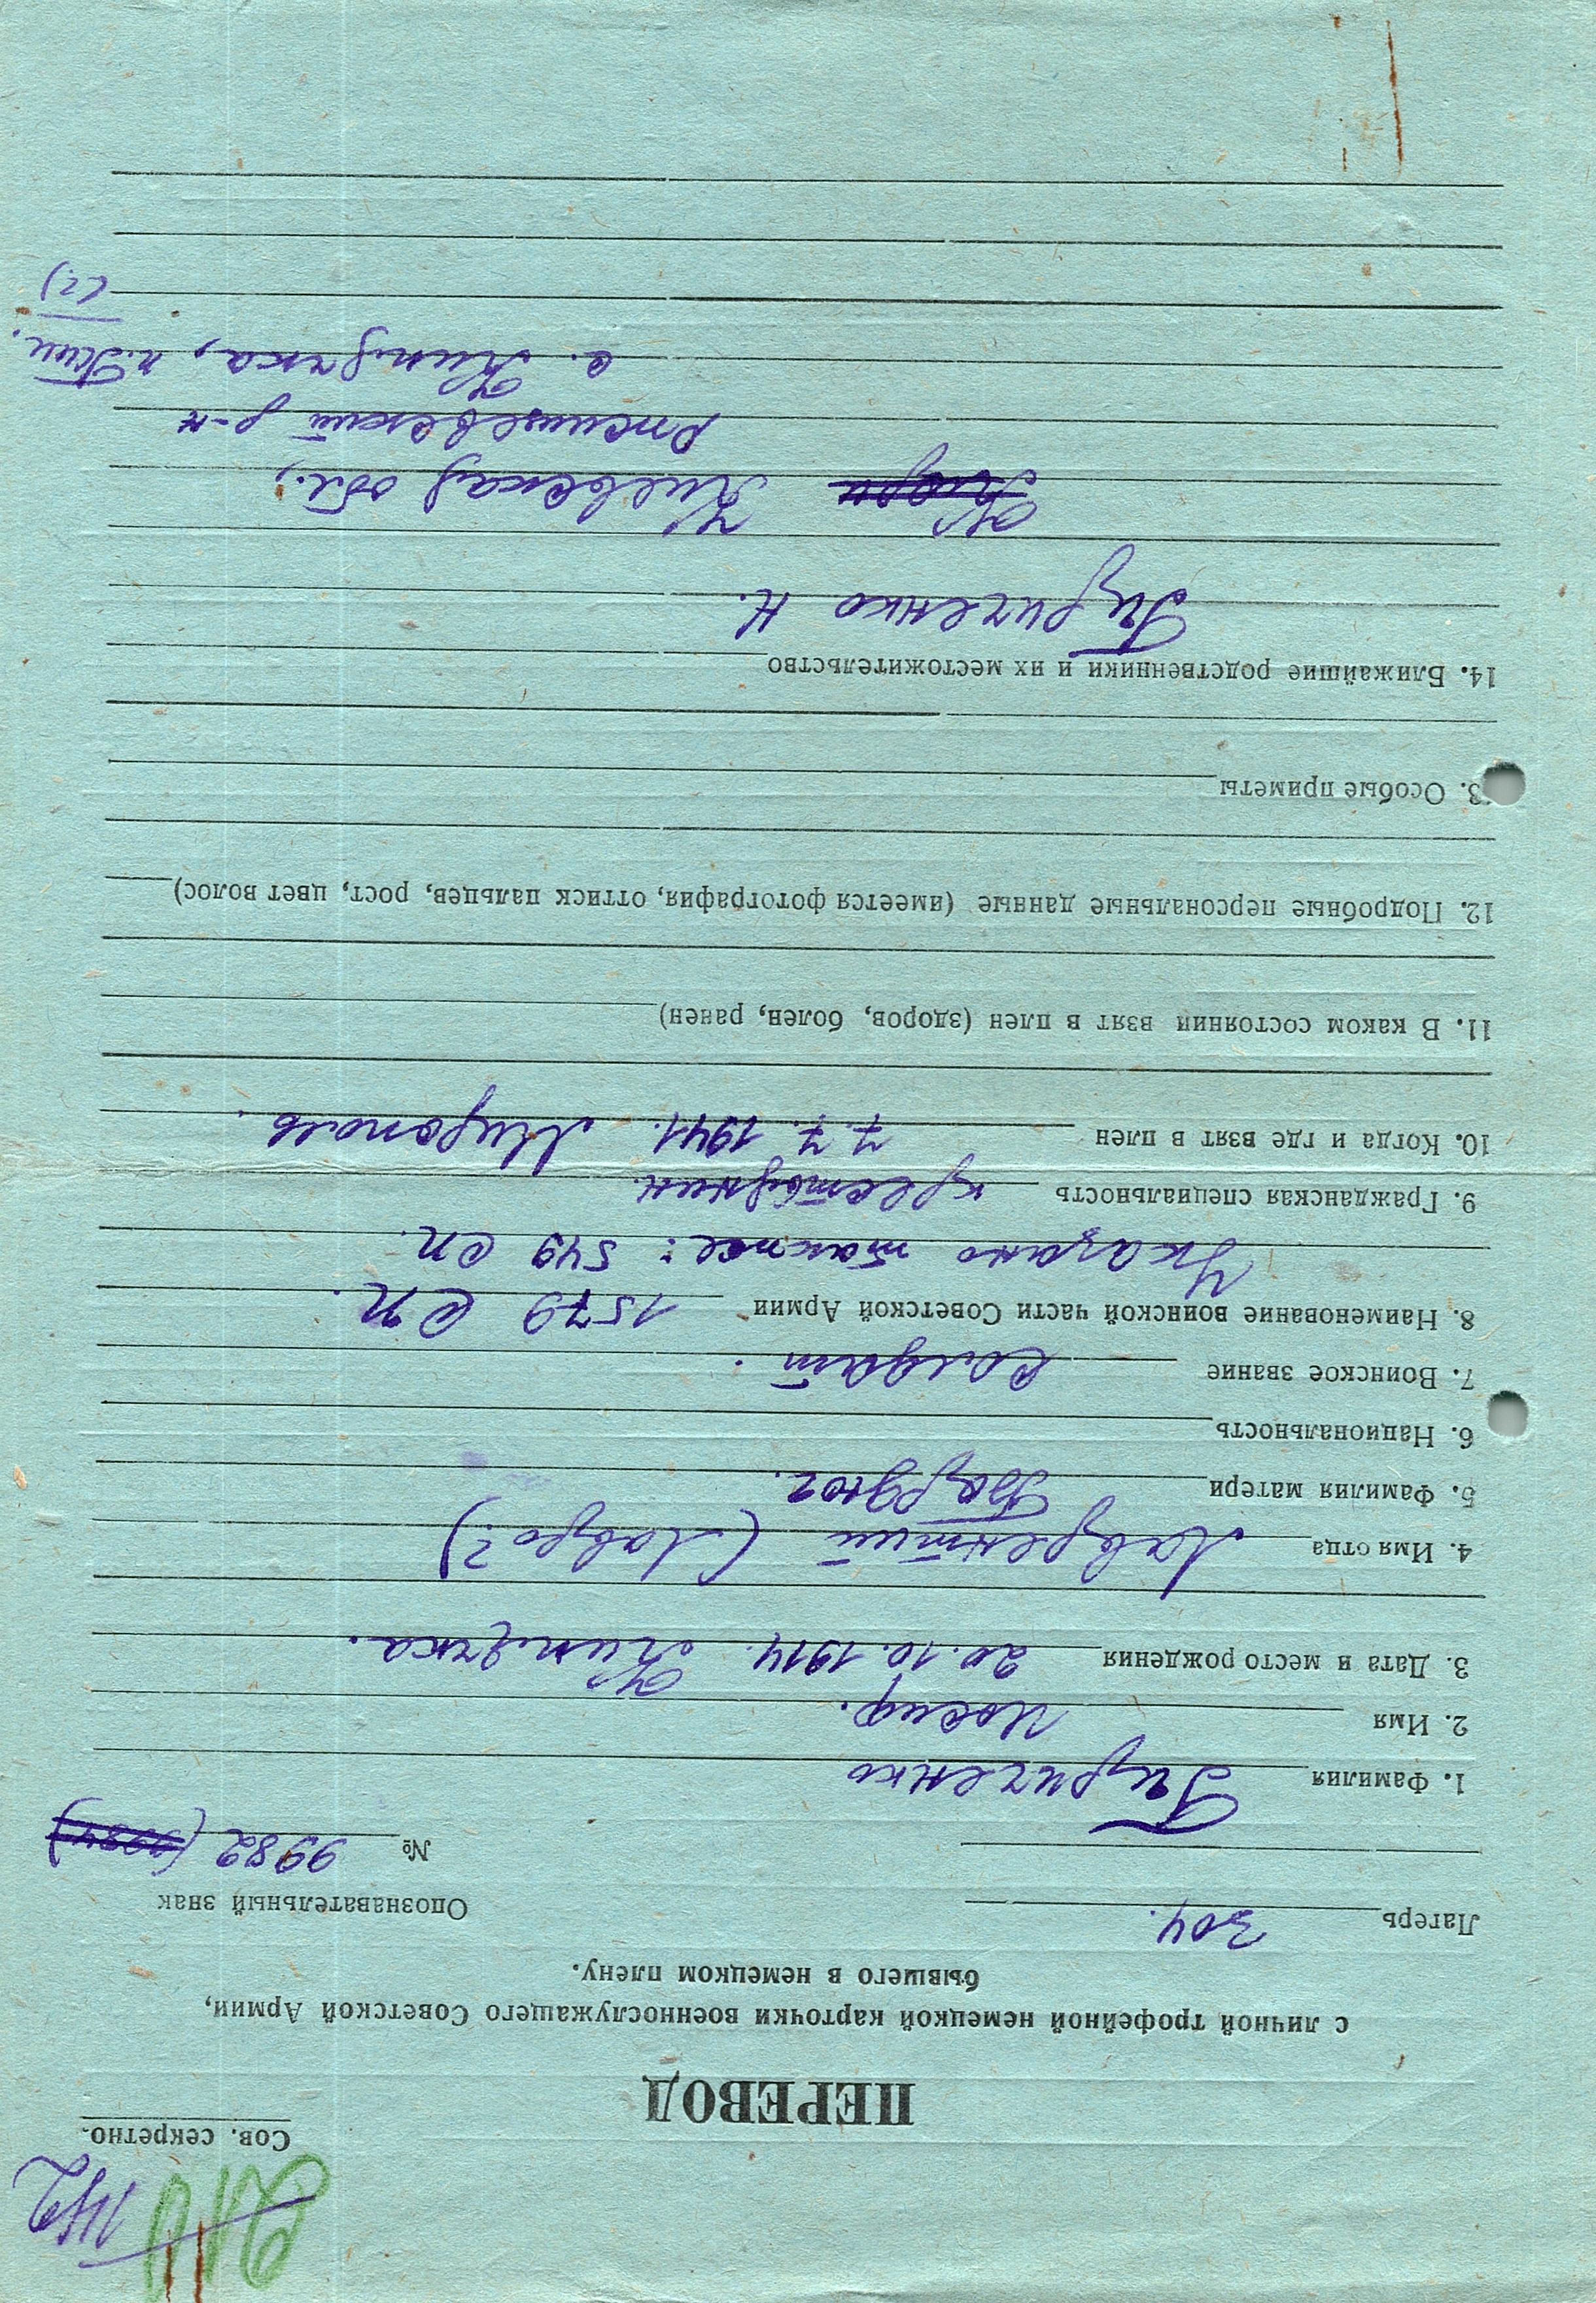 Сов. секретно.
ПЕРЕВОД
с личной трофейной немецкой карточки военнослужащего Советской Армии,
бывшего в немецком плену.
Лагерь 304.
Опознавательный знак
№ 9982
1. Фамилия Гириченко
2. Имя Иосиф.
3. Дата и место рождения 20.10.1914. Кипячка.
4. Имя отца Лаврентий (Лавро?)
5. Фамилия матери Бардюг.
6. Национальность
7. Воинское звание солдат.
8. Наименование воинской части Советской Армии 1579 СП.
Указано также: 549 сп.
9. Гражданская специальность крестьянин.
10. Когда и где взят в плен 7.7.1941. Мирополь.
11. В каком состоянии взят в плен (здоров, болен, ранен)
12. Подробные персональные данные (имеется фотография, оттиск пальцев, рост, цвет волос)
3. Особые приметы
14. Ближайшие родственники и их местожительство
Гириченко Н.
Киевская обл.,
Ржищевский р-н
с. Кипячка,
(?)